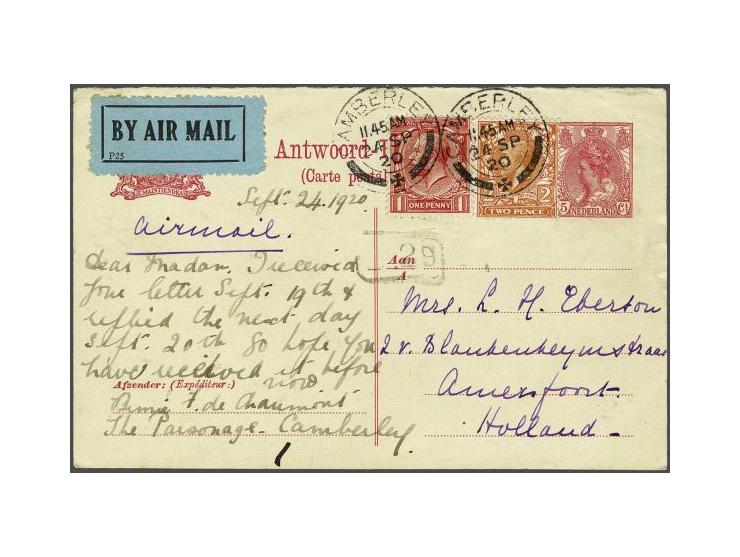 BY AIR MAIL
P25
JE MAINTIENDRAI
Antwoord-
(Carte posta
CAMBERLEY
11.45 AM
24 SP
20
CAMBERLEY
11.45 AM
24 SP
20
1 ONE PENNY 1
TWO PENCE 2
5 NEDERLAND Ct
Sept. 24. 1920
airmail.
Dear Madam, I received
your letter Sept. 19th &
replied the next day
Sept. 20th So hope you
have received it before
now
Afzender: (Expéditeur:)
F. de Chaumont
The Parsonage. Camberley
29
Aan
A
Mrs. L. H. Eberson
2 v. Blankenheymstraat
Amersfoort.
Holland